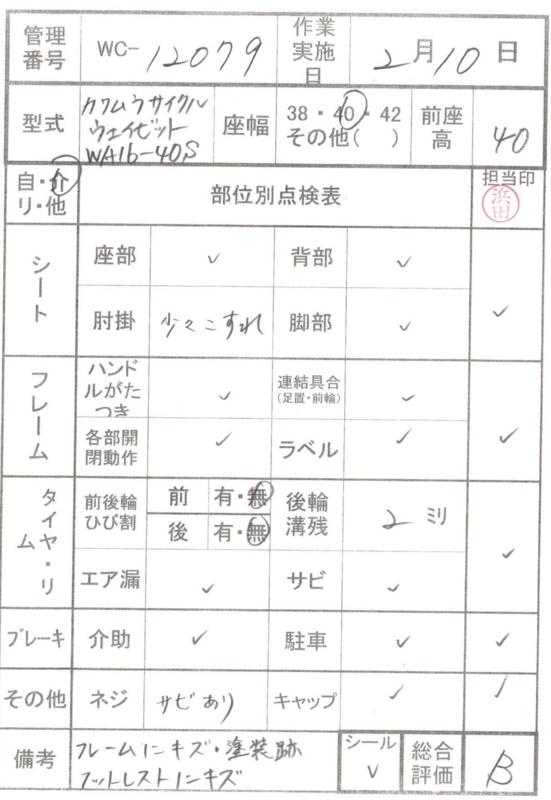 管理番号 WC-12079 作業実施日 2月10日
型式 カワムラサイクル ウェイビット WA16-40S 座幅 38・40・42 その他( ) 前座高 40
自・介 リ・他 部位別点検表 担当印 浜田
シート 座部 ✓ 背部 ✓ ✓
肘掛 少々こすれ 脚部 ✓
フレーム ハンドルがたつき ✓ 連結具合(足置・前輪) ✓ ✓
各部開閉動作 ✓ ラベル ✓
タイヤ・リム 前後輪ひび割 前 有・無 後輪溝残 2 ミリ ✓
後 有・無
エア漏 ✓ サビ ✓
ブレーキ 介助 ✓ 駐車 ✓ ✓
その他 ネジ サビあり キャップ ✓ ✓
備考 フレームにキズ・塗装跡 シール ✓ 総合評価 B
フットレストにキズ